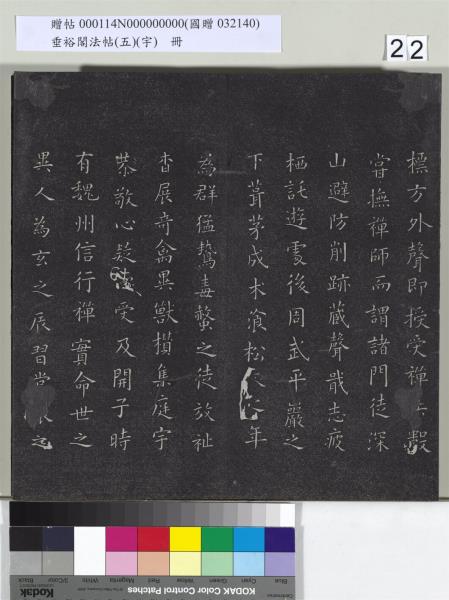 贈帖 000114N000000000(國贈 032140)
垂裕閣法帖(五)(宇) 冊
22
標方外聲即授受禪數
甞撫禪師而謂諸門徒深
山避防削跡藏聲戢志疲
栖託遊處後周武平嚴之
下葺茅成木飡松年
為群猛鷙毒螫之徒放祉
杳展奇禽異獸攢集庭宇
恭敬心疑受及開子時
有魏州信行禪實命世之
異人為玄之辰習當之
Black
3/Color
White
Magenta
Red
Yellow
Green
Cyan
Blue
Kodak
KODAK Color Control Patches